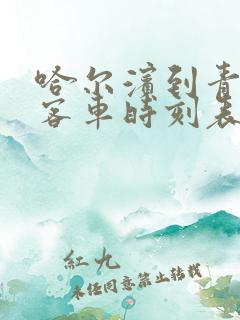 哈尔滨到青
客车时刻表
紅九
未经同意禁止转载